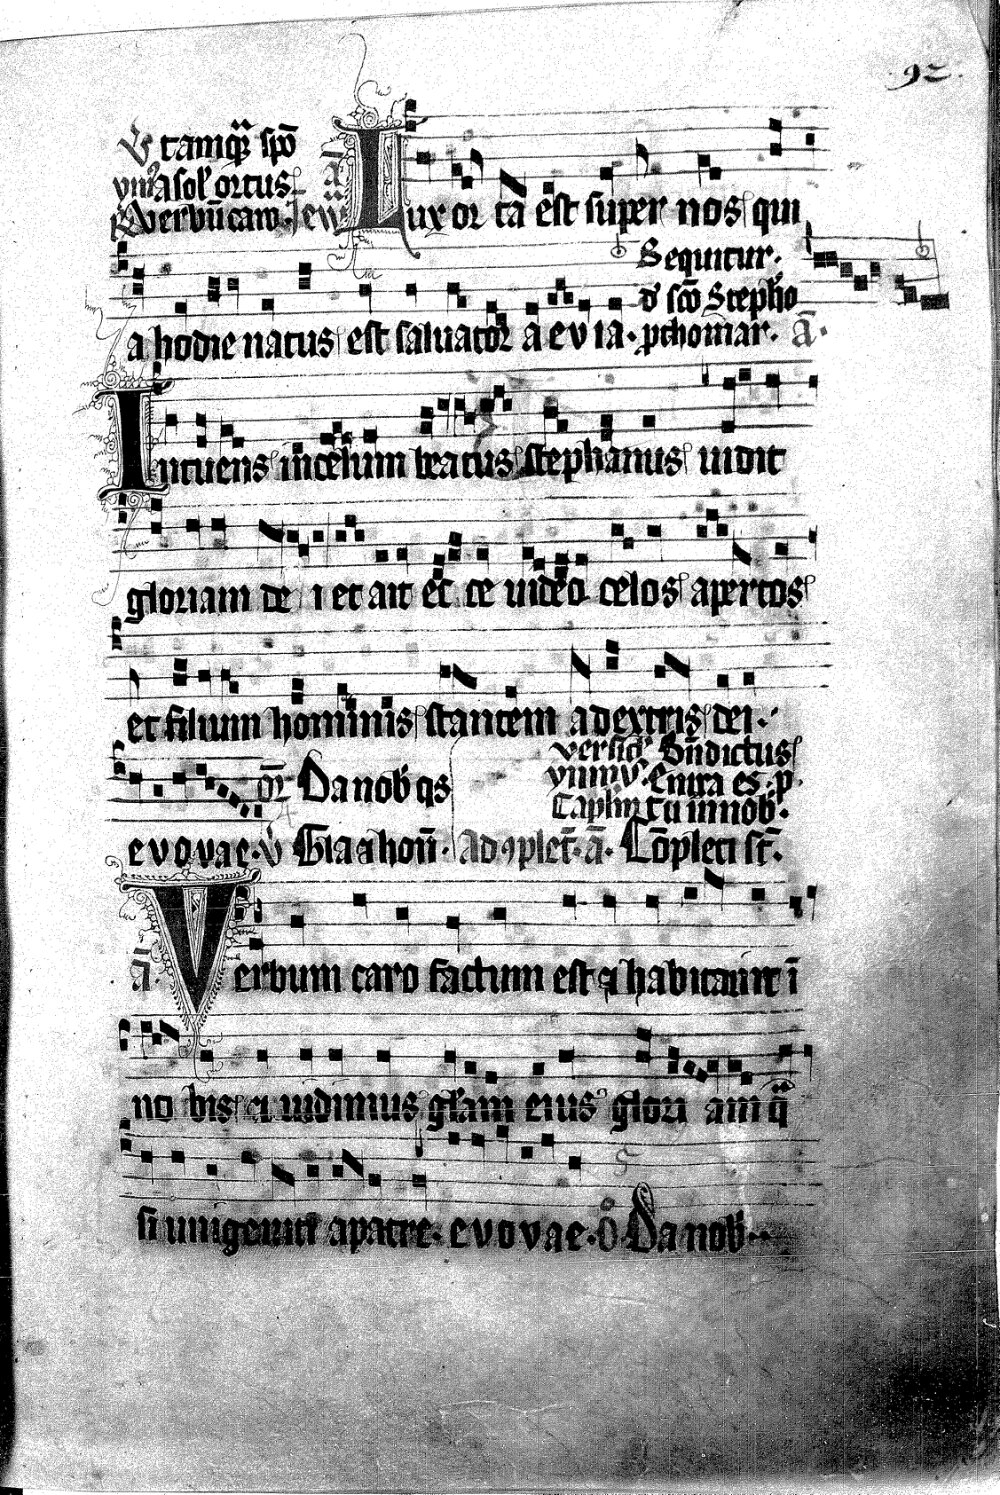 92
tamq̄ʒ spō
a sol' ortus
verbū caro
Lux orta est super nos qui
Sequitur.
d' sc̄o Stepho
a hodie natus est saluator a e v i a. pthomar. ā.
Intuens in celum beatus stephanus uidit
gloriam de i et ait ec ce uideo celos apertos
et filium hominis stantem a dextris dei.
versic' Bn̄dictus
ymnʒ. Enixa es. p.
or̄ Da nob' qs
Caplm̄ Tu in nob'.
e v o v ae. v̄ Gla a hon̄. Ad 9plet̄. ā. Cōpleti st̄.
ā. Verbum caro factum est ⁊ habitauit ī
no bis ⁊ uidimus glām eius glori am q̄
si unigeniti a patre. e v o v a e. ō Da nob'.